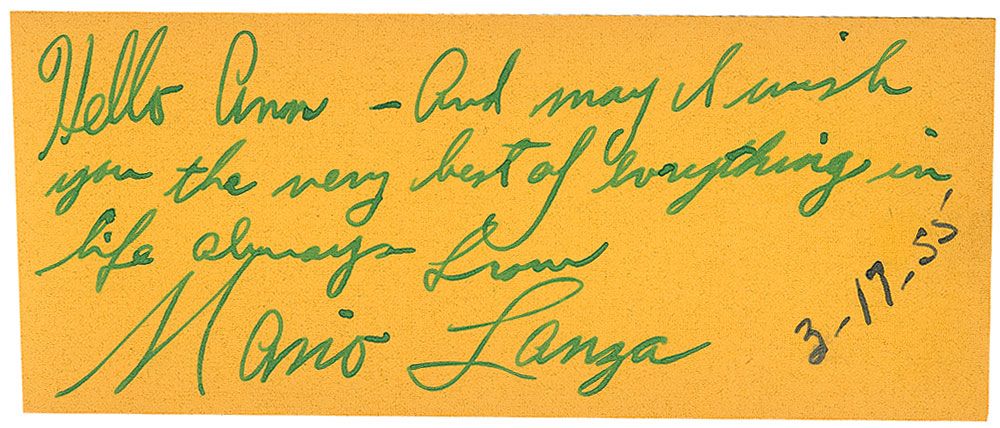 Hello Ann – And may I wish
you the very best of everything in
life always from
Mario Lanza
3-19-55